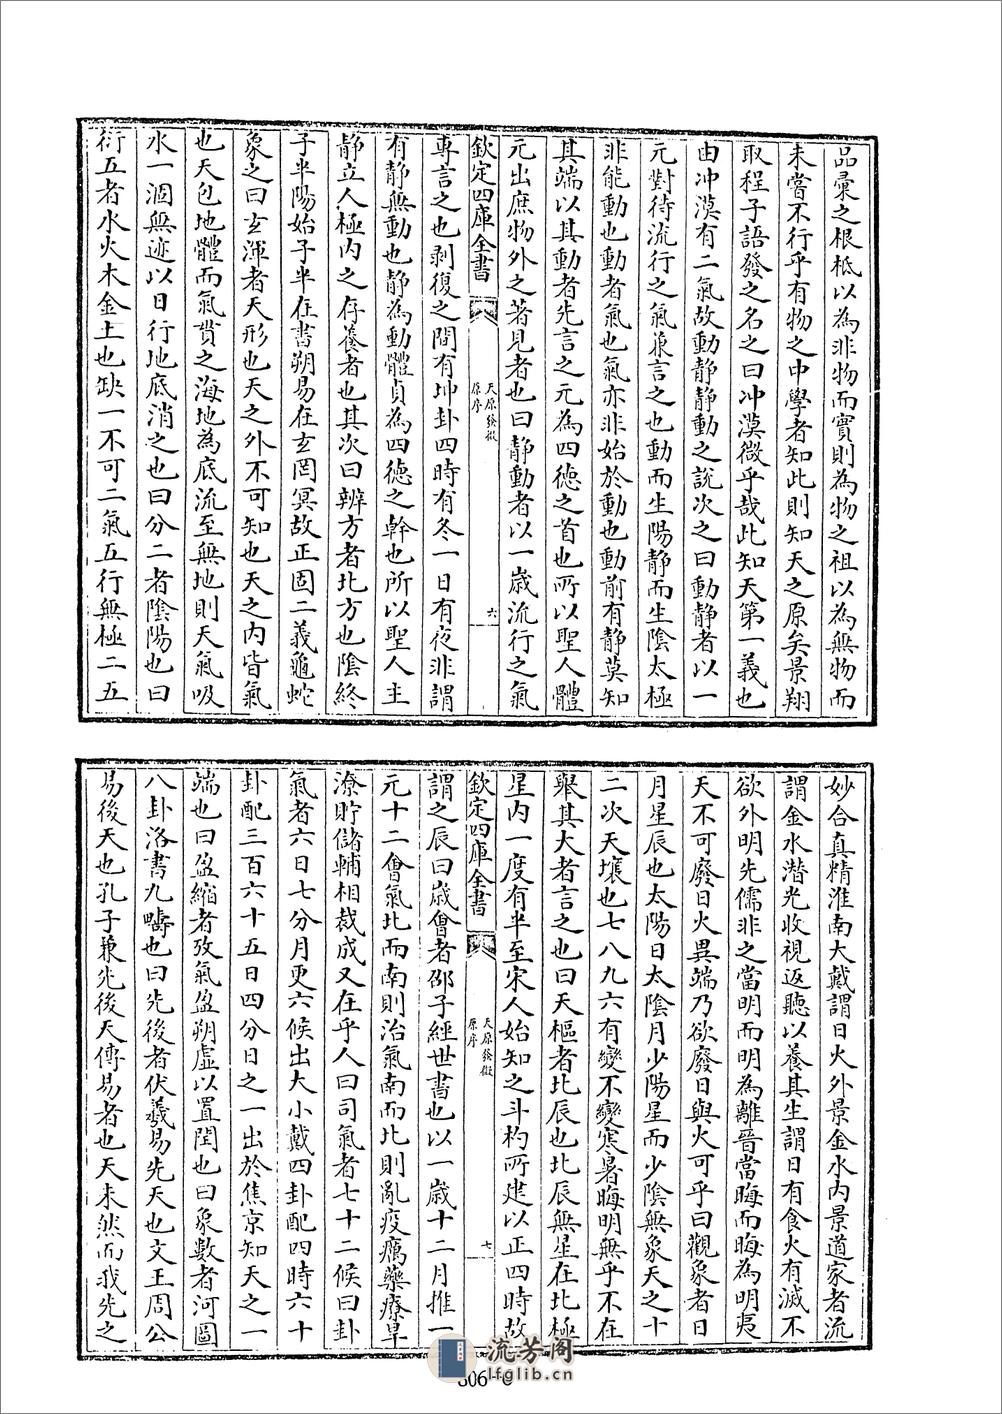 品彚之根柢以為非物而實則為物之祖以為無物而
未嘗不行乎有物之中學者知此則知天之原矣景翔
取程子語發之名之曰冲漠微乎哉此知天第一義也
由冲漠有二氣故動靜靜動之說次之曰動靜者以一
元對待流行之氣兼言之也動而生陽靜而生陰太極
非能動也動者氣也氣亦非始於動也動前有靜莫知
其端以其動者先言之元為四德之首也所以聖人體
元出庶物外之著見者也曰靜動者以一歲流行之氣
欽定四庫全書
天原發微
原序
六
專言之也剥復之間有坤卦四時有冬一日有夜非謂
有靜無動也靜為動體貞為四德之幹也所以聖人主
靜立人極内之存養者也其次曰辨方者北方也陰終
子半陽始子半在書朔易在玄罔冥故正固二義龜蛇
象之曰玄渾者天形也天之外不可知也天之内皆氣
也天包地體而氣貫之海地為底流至無地則天氣吸
水一涸無迹以日行地底消之也曰分二者陰陽也曰
衍五者水火木金土也缺一不可二氣五行無極二五
妙合真精淮南大戴謂日火外景金水内景道家者流
謂金水潛光收視返聽以養其生謂日有食火有滅不
欲外明先儒非之當明而明為離晉當晦而晦為明夷
天不可廢日火異端乃欲廢日與火可乎曰觀象者日
月星辰也太陽日太陰月少陽星而少陰無象天之十
二次天壤也七八九六有變不變寒暑晦明無乎不在
舉其大者言之也曰天樞者北辰也北辰無星在北極
星内一度有半至宋人始知之斗杓所建以正四時故
欽定四庫全書
天原發微
原序
七
謂之辰曰歲會者邵子經世書也以一歲十二月推一
元十二會氣北而南則治氣南而北則亂疫癘藥療旱
潦貯儲輔相裁成又在乎人曰司氣者七十二候曰卦
氣者六日七分月更六候出大小戴四卦配四時六十
卦配三百六十五日四分日之一出於焦京知天之一
端也曰盈縮者攷氣盈朔虛以置閏也曰象數者河圖
八卦洛書九疇也曰先後者伏羲易先天也文王周公
易後天也孔子兼先後天傳易者也天未然而我先之
流芳阁
lfglib.cn